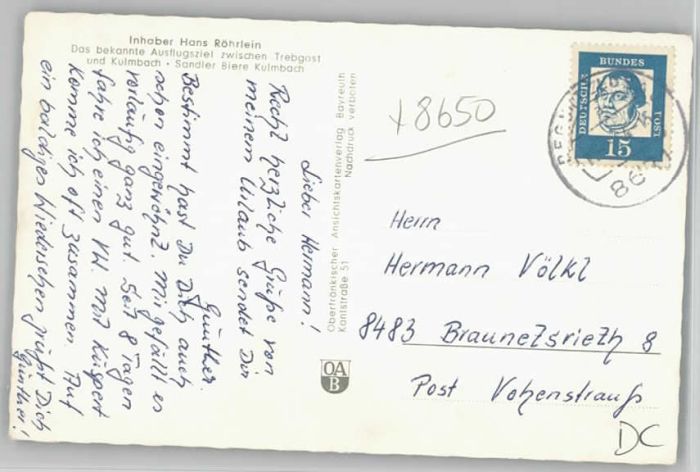 Inhaber Hans Röhrlein
Das bekannte Ausflugsziel zwischen Trebgast
und Kulmbach · Sandler Biere Kulmbach
Lieber Hermann!
Recht herzliche Grüße von
meinem Urlaub sendet Dir
Günther.
Bestimmt hast Du Dich auch
schon eingewöhnt. Mir gefällt es
vorläufig ganz gut. Seit 8 Tagen
fahre ich einen VW. Mit Küspert
komme ich oft zusammen. Auf
ein baldiges Wiedersehen grüßt Dich
Günther!
Oberfränkischer Ansichtskartenverlag Bayreuth
Kantstraße 51
Nachdruck verboten
OA
B
+8650
DEUTSCHE
BUNDES
POST
15
Herrn
Hermann Völkl
8483 Braunetsrieth 8
Post Vohenstrauß
DC